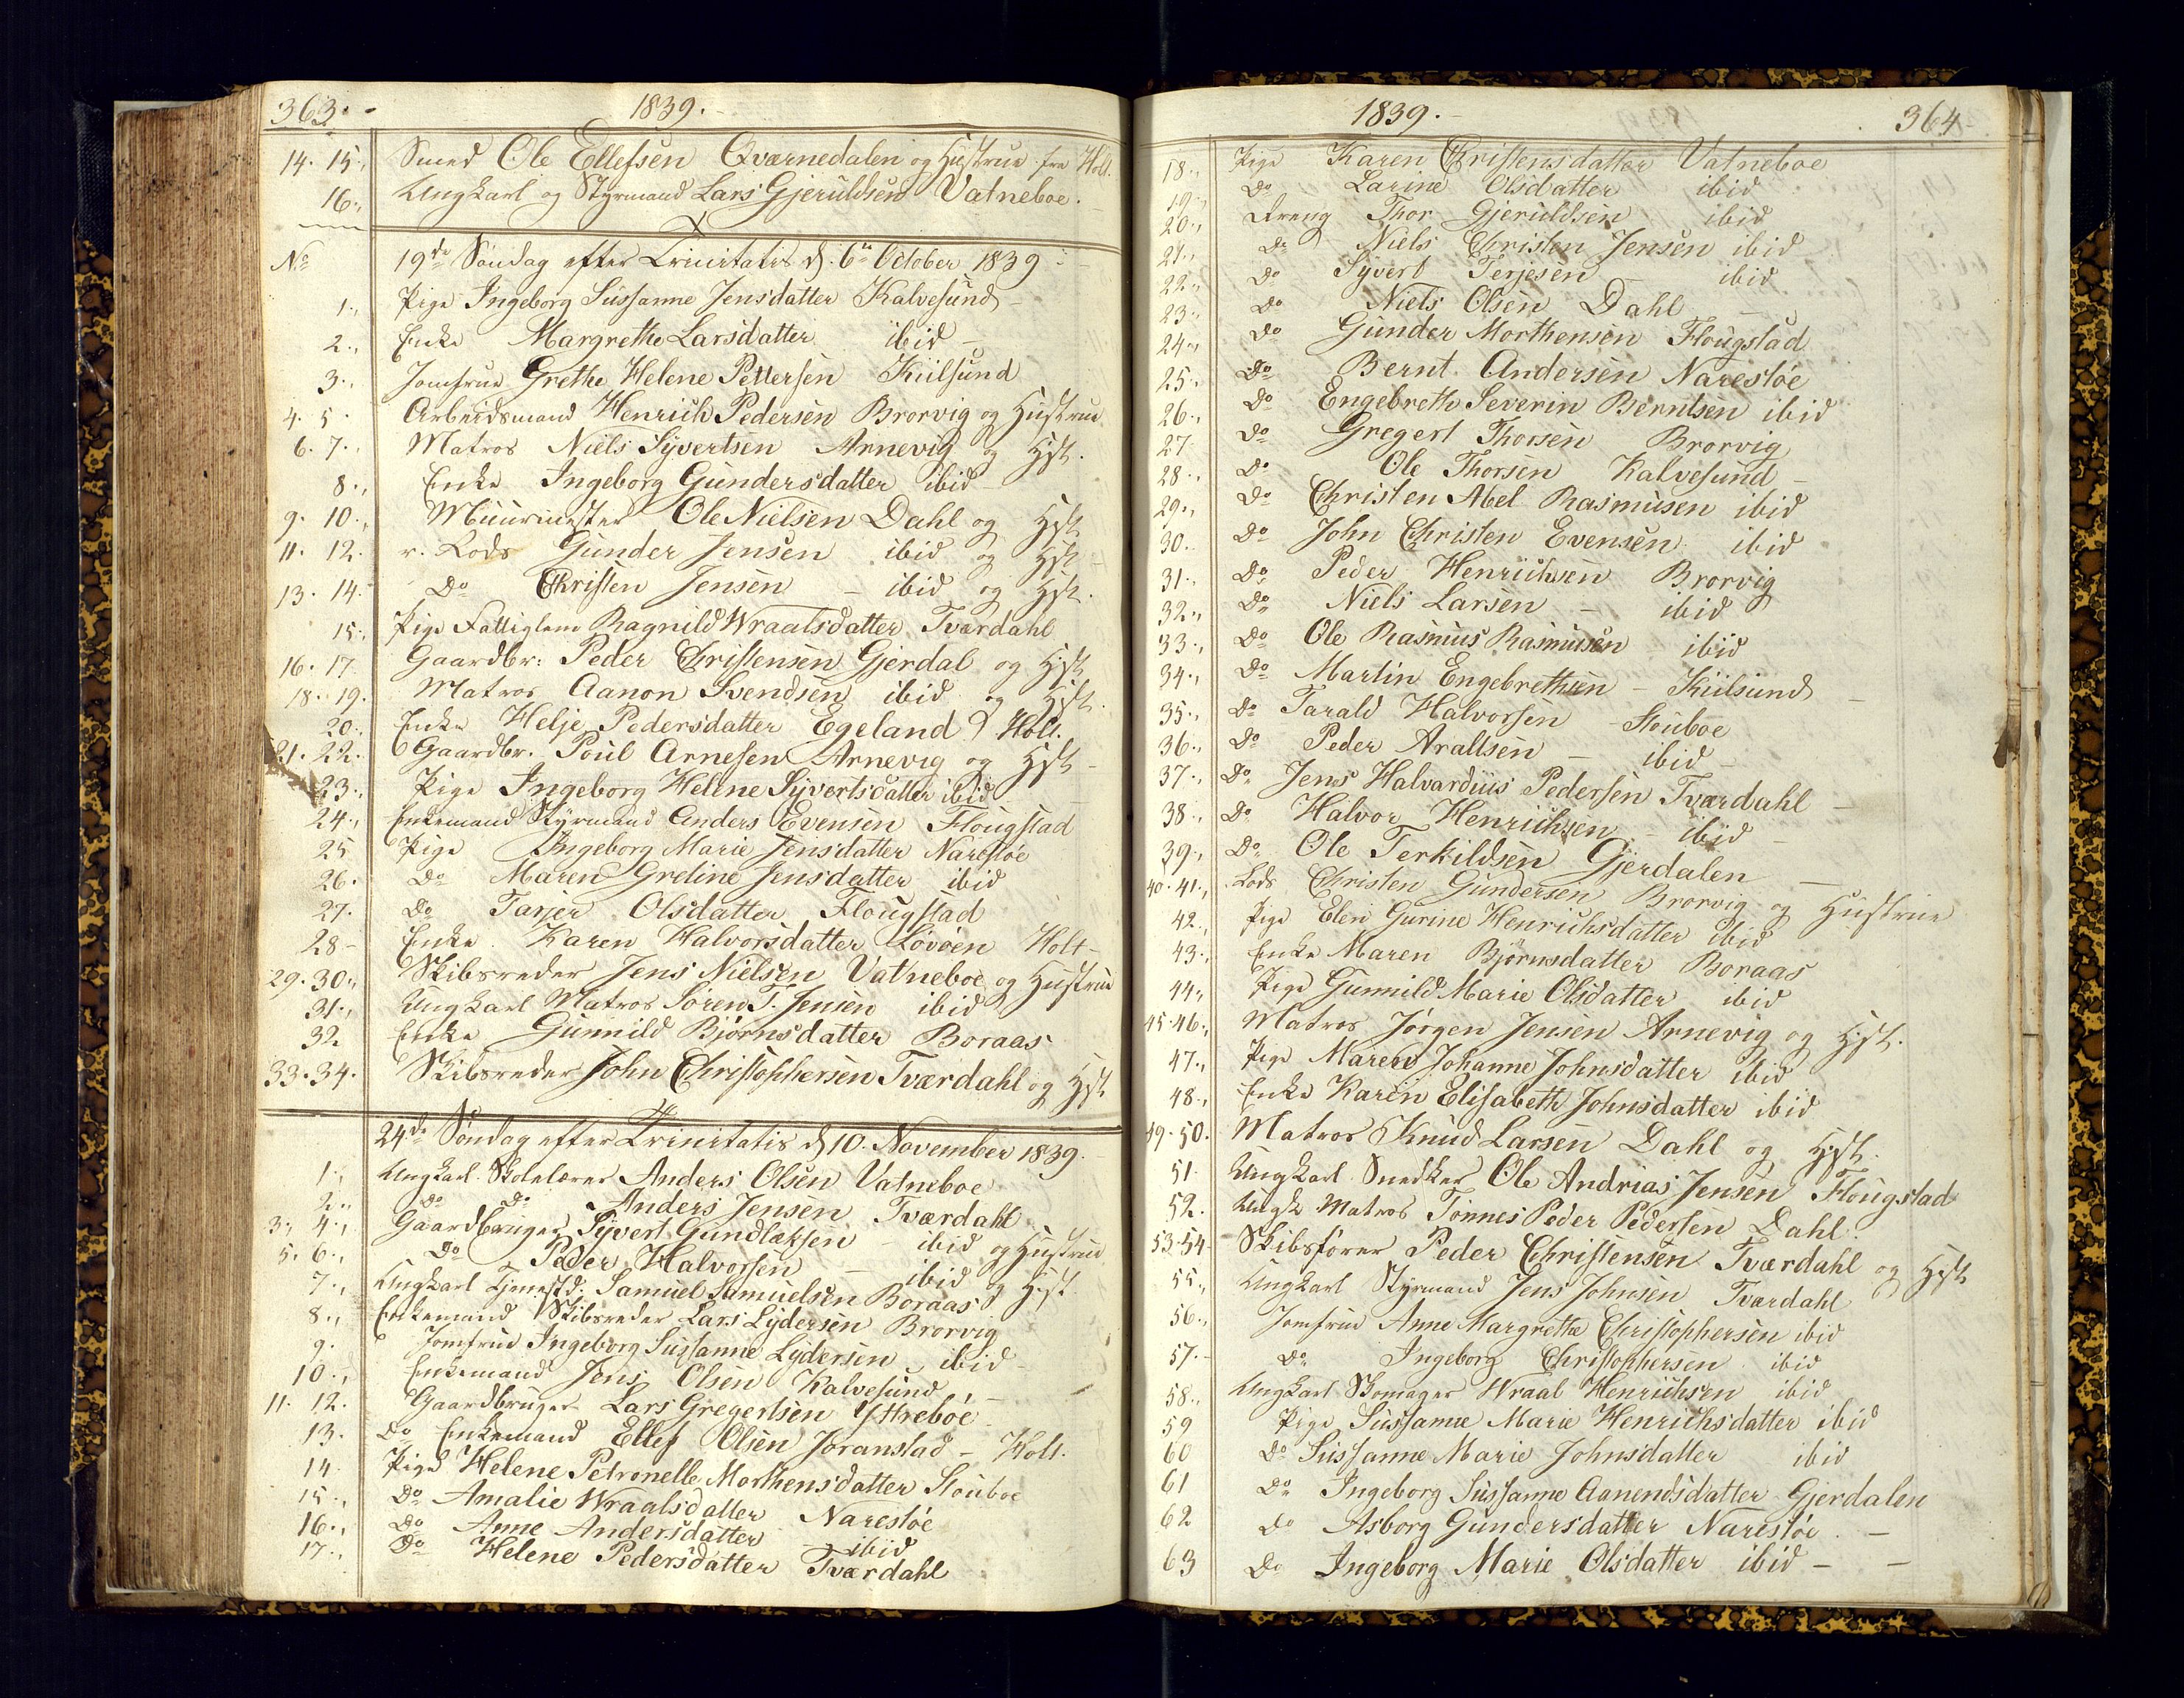 363. - 1839. -
14. 15., Smed Ole Ellefsen Qværnedalen og Hustrue fra Holt.
16., Ungkarl og Styrmand Lars Gjeruldsen Vatneboe.
No 19de Søndag efter Trinitatis d. 6te October 1839
1., Pige Ingeborg Sussanne Jensdatter Kalvesund -
2., Enke Margrethe Larsdatter ibid -
3., Jomfrue Grethe Helene Pettersen Kiilsund
4. 5. Arbeidsmand Henrich Pedersen Brorvig og Hustrue
6. 7. Matros Niels Syvertsen Arnevig og Hst.
8., Enke Ingeborg Gundersdatter ibid
9. 10., Muurmester Ole Nielsen Dahl og Hst
11. 12. r. Lods Gunder Jensen ibid og Hst
13. 14. Do Christen Jensen - ibid og Hst.
15., Pige Fattiglem Ragnild Wraalsdatter Tværdahl
16. 17 Gaardbr: Peder Christensen Gjerdal og Hst
18. 19. Matros Aanon Svendsen ibid og Hst.
20., Enke Helje Pedersdatter Egeland Holt.
21. 22. Gaardbr. Poul Arnesen Arnevig og Hst -
23., Pige Ingeborg Helene Syvertsdatter ibid
24., Enkemand Styrmand Anders Evensen Flougstad
25 Pige Ingeborg Marie Jensdatter Narestøe
26. Do Maren Greline Jensdatter ibid
27. Do Tarjer Olsdatter Flougstad
28 - Enke Karen Halvorsdatter Løvøen Holt -
29. 30., Skibsreder Jens Nielsen Vatneboe og Hustrue
31., Ungkarl Matros Søren T. Jensen ibid
32 Enke Gunnild Bjørnsdatter Boraas
33. 34. Skibsreder John Christophersen Tværdahl og Hst
24de Søndag efter Trinitatis d 10. November 1839.
1., Ungkarl Skolelærer Anders Olsen Vatneboe
2., do do Anders Jensen Tværdahl
3., 4., Gaardbruger Syvert Gundlaksen - ibid og Hustrue
5. 6., Do Peder Halvorsen - ibid og Hst
7., Ungkarl Tjenestd: Samuel Samuelsen Boraas
8., Enkemand Skibsreder Lars Lydersen Brorvig
9. Jomfrue Ingeborg Sussanne Lydersen ibid -
10., Enkemand Jens Olsen Kalvesund -
11. 12. Gaardbruger Lars Gregertsen Yttrebøe
13. Do Enkemand Ellef Olsen Joranstad - Holt.
14 Pige Helene Petronelle Morthensdatter Stouboe
15., Do Amalie Wraalsdatter Narestøe
16., Do Anne Andersdatter - ibid
17., Do Helene Pedersdatter Tværdahl
1839. - 364 -
18., Pige Karen Christensdatter Vatneboe
19., Do Larine Olsdatter ibid
20., Dreng Thor Gjeruldsen ibid
21., Do Niels Christen Jensen ibid
22., Do Syvert Terjesen - ibid
23., Do Niels Olsen Dahl -
24., Do Gunder Morthensen Flougstad
25., Do Bernt Andersen Narestøe
26., Do Engebreth Severin Berntsen ibid
27 Do Gregert Thorsen Brorvig
28., Do Ole Thorsen Kalvesund -
29., Do Christen Abel Rasmusen ibid
30. Do John Christen Evensen ibid
31., Do Peder Henrichsen Brorvig
32., Do Niels Larsen - ibid
33., Do Ole Rasmus Rasmussen ibid
34., Do Martin Engebrethsen - Kiilsund -
35., Do Tarald Halvorsen Stouboe
36., Do Peder Araltsen - ibid -
37., Do Jens Halvardius Pedersen Tværdahl -
38., Do Halvor Henrichsen - ibid -
39., Do Ole Terkildsen Gjerdalen -
40. 41., Lods Christen Gundersen Brorvig og Hustrue
42., Pige Elen Gurine Henrichsdatter ibid
43., Enke Maren Bjørnsdatter Boraas
44., Pige Gunnild Marie Olsdatter ibid
45. 46., Matros Jørgen Jensen Arnevig og Hst.
47., Pige Maren Johanne Johnsdatter ibid
48., Enke Karen Elisabeth Johnsdatter ibid
49. 50. Matros Knud Larsen Dahl og Hst.
51. Ungkarl Snedker Ole Andrias Jensen Flougstad
52. Ungk Matros Tønnes Peder Pedersen Dahl.
53. 54 Skibsfører Peder Christensen Tværdahl og Hst
55., Ungkarl Styrmand Jens Johnsen Tværdahl
56., Jomfrue Anne Margrethe Christophersen ibid
57. - Do Ingeborg Christophersen ibid
58., Ungkarl Skomager Wraal Henrichsen ibid
59 Pige Sussanne Marie Henrichsdatter ibid
60 Do Sussanne Marie Johnsdatter ibid
61 Do Ingeborg Sussanne Aanendsdatter Gjerdalen
62 Do Asborg Gundersdatter Narestøe. -
63 Do Ingeborg Marie Olsdatter ibid - -